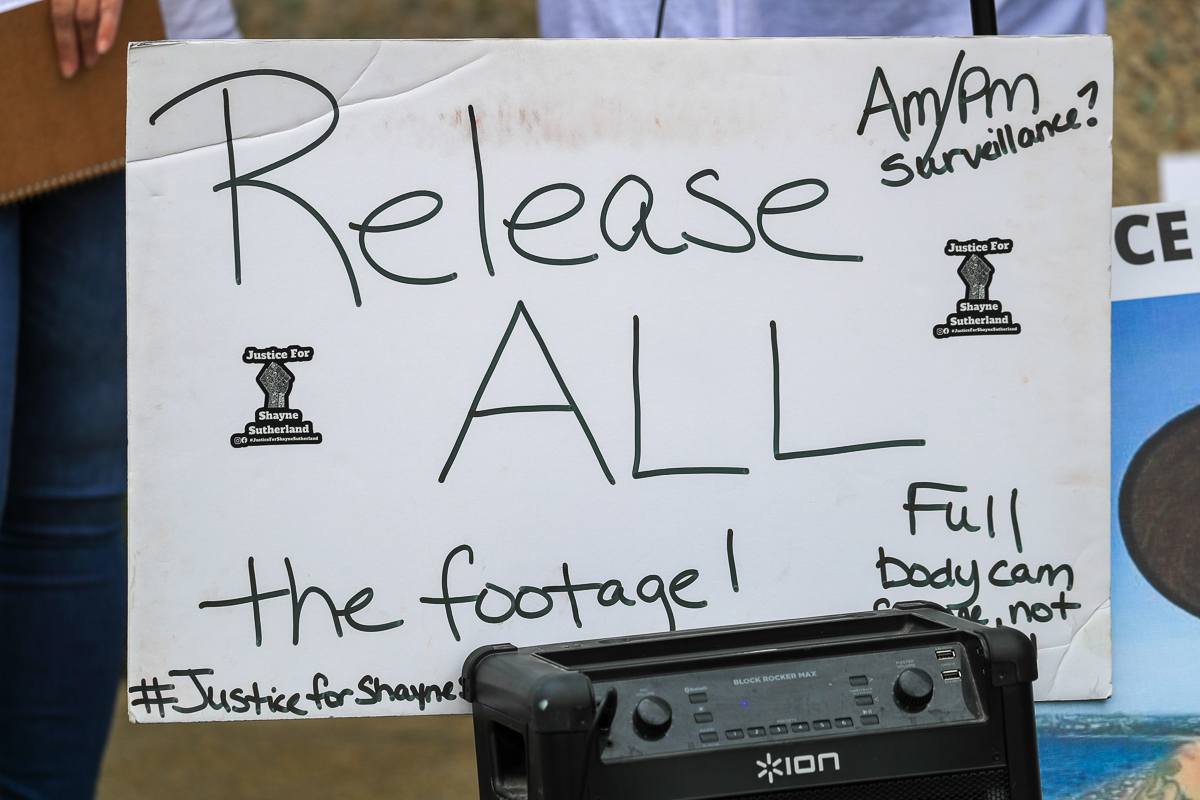 Release
Am/Pm
Surveillance?
Justice For
Shayne
Sutherland
#JusticeForShayneSutherland
ALL
Justice For
Shayne
Sutherland
#JusticeForShayneSutherland
the footage!
Full
body cam
not
#JusticeforShayne
CE
BLOCK ROCKER MAX
ION